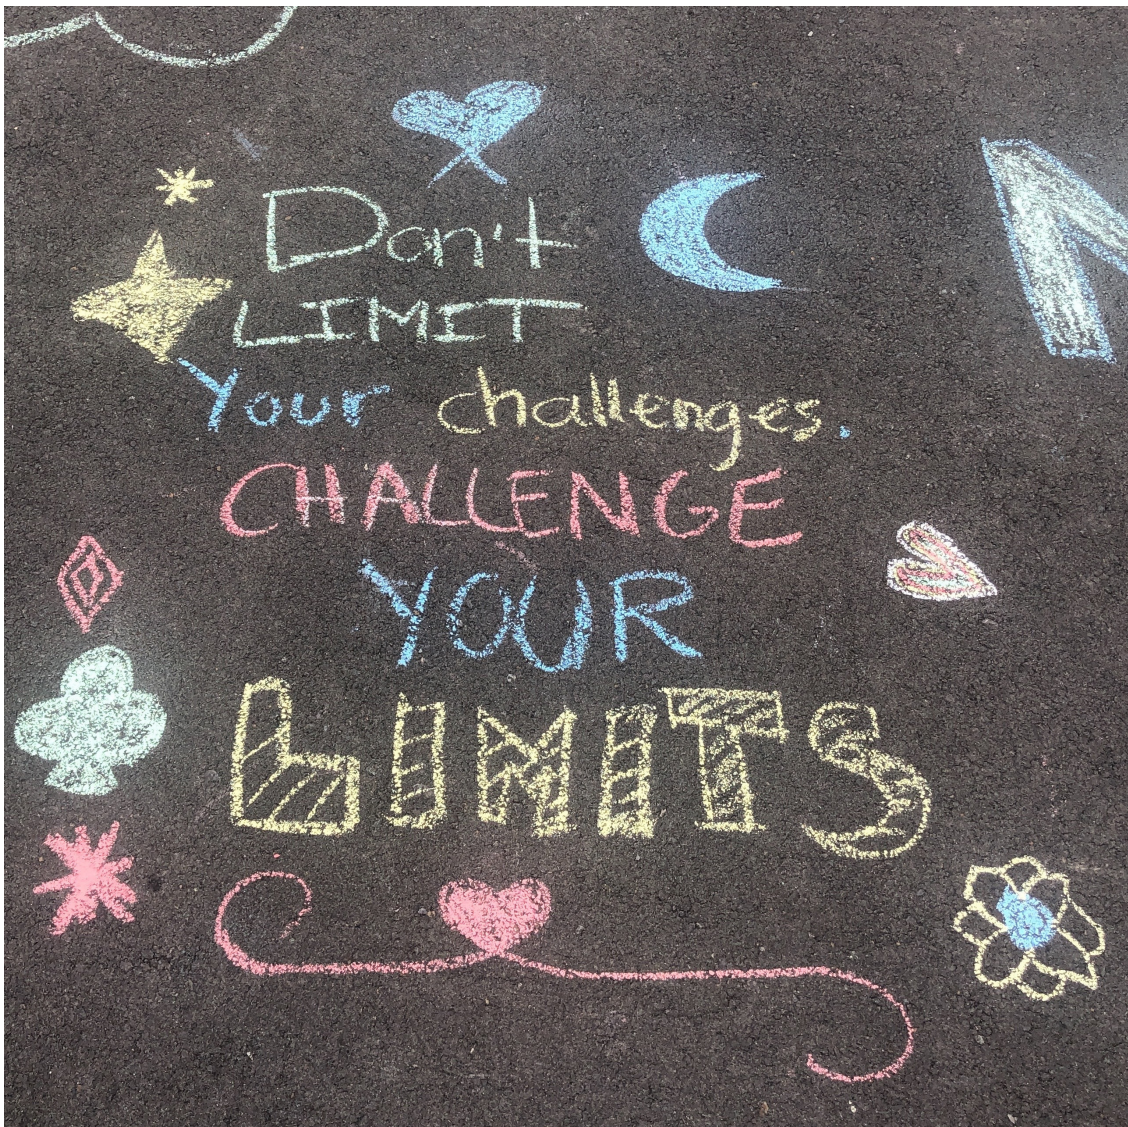 Don't
LIMIT
Your challenges.
CHALLENGE
YOUR
LIMITS